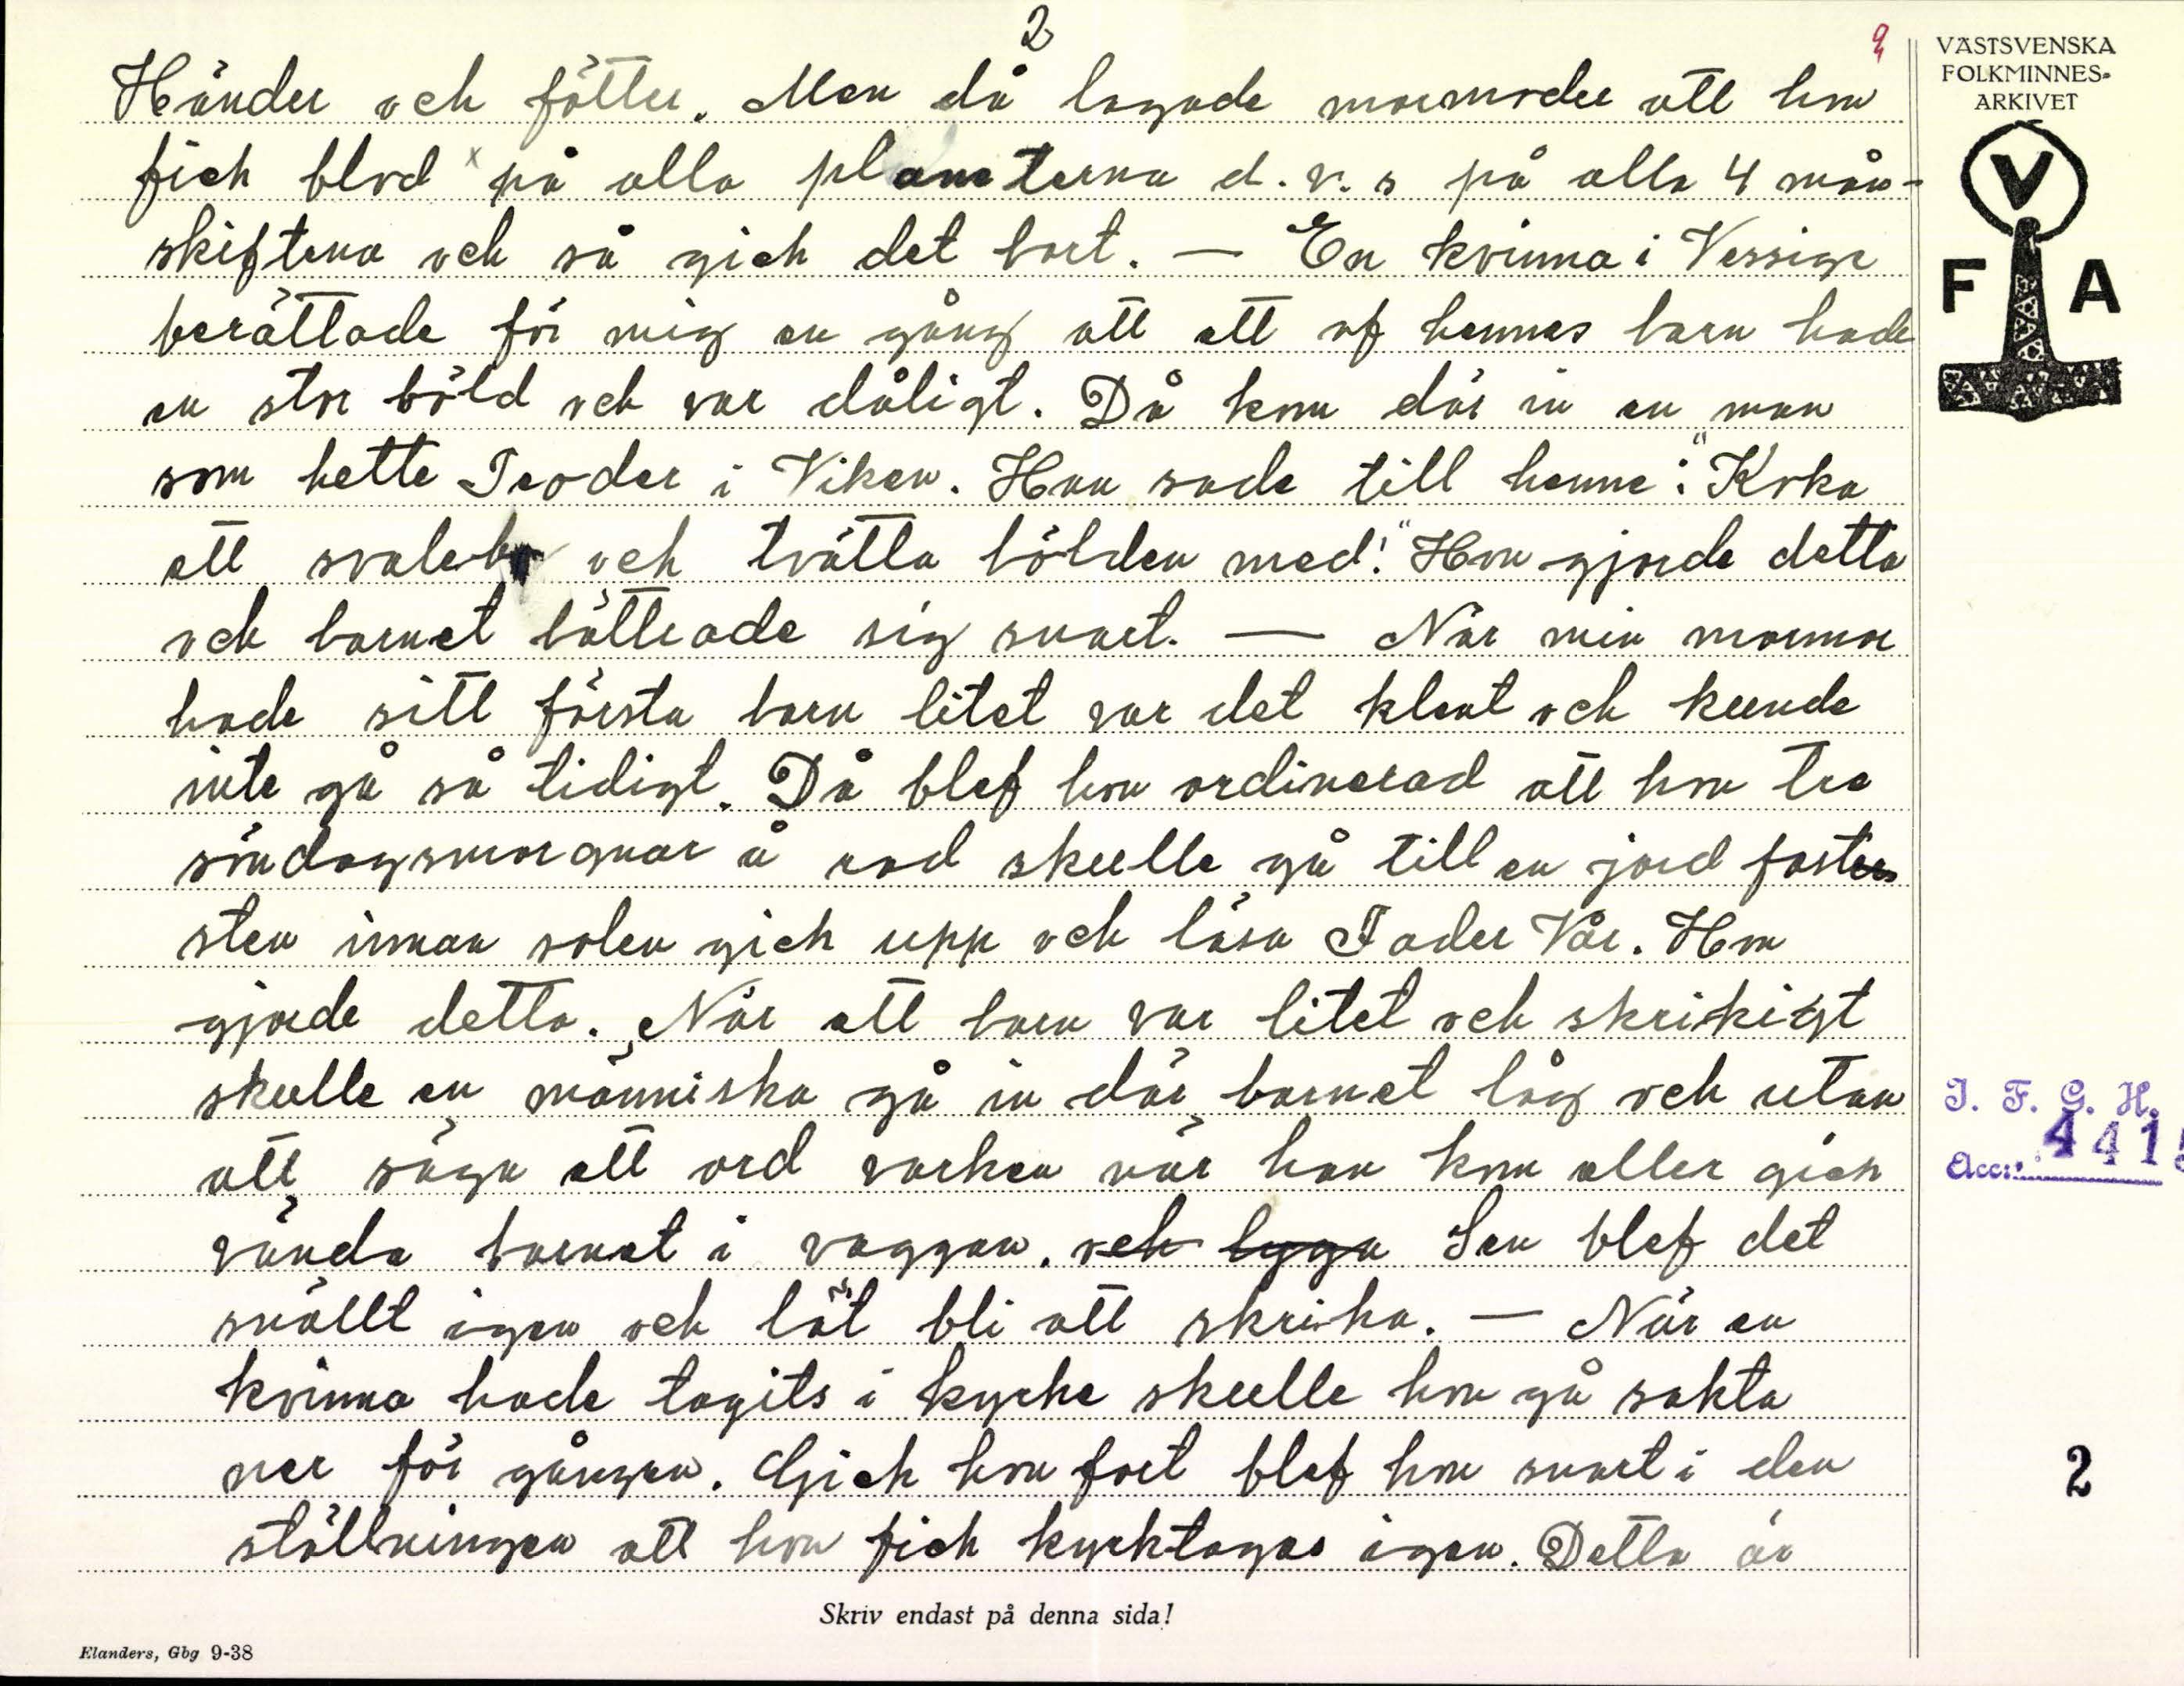 2
9
VÄSTSVENSKA
FOLKMINNES-
ARKIVET
V
F A
Händer och fötter. Men då lagade mormoder att hon
fick blod x på alla planeterna d. v. s på alla 4 mån-
skiftena och så gick det bort. — En kvinna i Vessige
berättade för mig en gång att ett af hennes barn hade
en stor böld och var dåligt. Då kom där in en man
som hette Teoder i Viken. Han sade till henne: "Koka
ett svalebo och tvätta bölden med!" Hon gjorde detta
och barnet bättrade sig snart. — När min mormor
hade sitt första barn litet var det klent och kunde
inte gå så tidigt. Då blef hon ordinerad att hon tre
söndagsmorgnar å rad skulle gå till en jord fast
sten innan solen gick upp och läsa Fader Vår. Hon
gjorde detta. När ett barn var litet och skrikigt
skulle en människa gå in där barnet låg och utan
att säga ett ord varken när han kom eller gick
vända barnet i vaggan. och lygga Sen blef det
snällt igen och lät bli att skrika. — När en
kvinna hade tagits i kyrke skulle hon gå sakta
ner för gången. Gick hon fort blef hon snart i den
ställningen att hon fick kyrktagas igen. Detta är
I. F. G. H.
Acc: 4415
2
Skriv endast på denna sida!
Elanders, Gbg 9-38